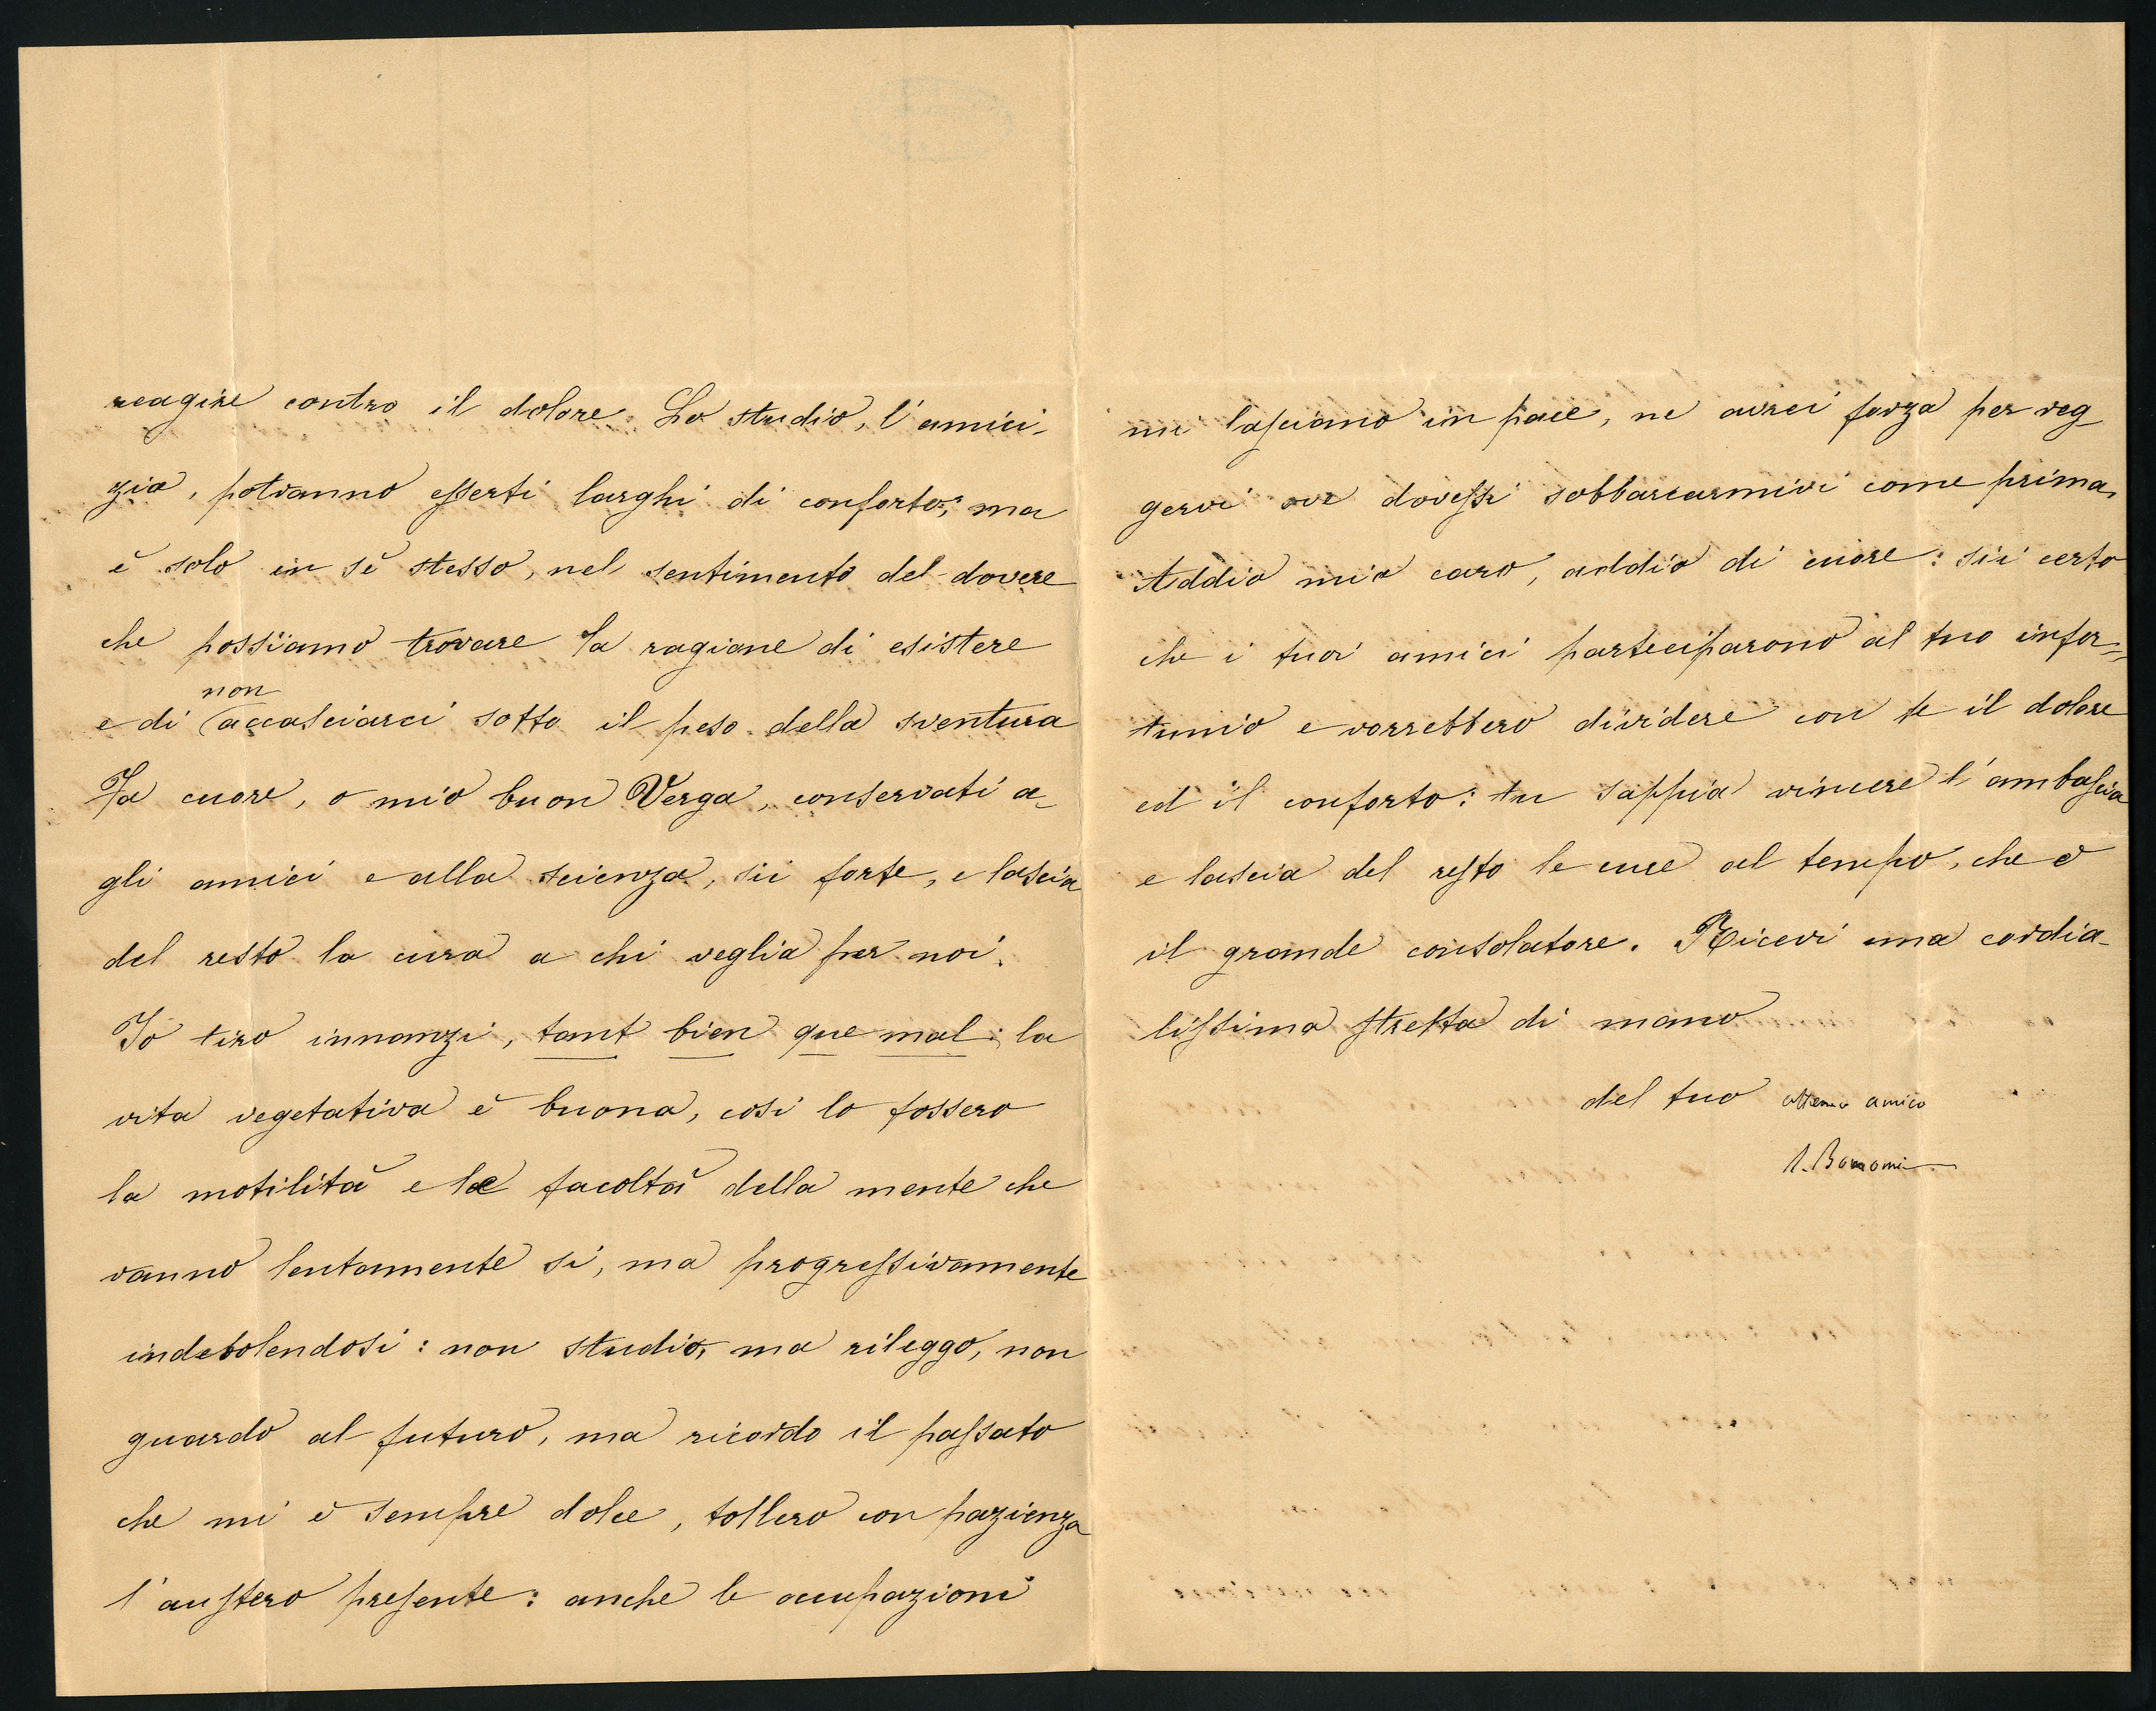 reagire contro il dolore. Lo studio, l'amici-
zia, potranno esserti larghi di conforto; ma
è solo in sè stesso, nel sentimento del dovere
che possiamo trovare la ragione di esistere
non
e di accasciarci sotto il peso della sventura
Fa cuore, o mio buon Verga, conservati a-
gli amici e alla scienza, sii forte, e lascia
del resto la cura a chi veglia per noi.
Io tiro innanzi, tant bien que mal: la
vita vegetativa è buona, così lo fossero
la motilità e le facoltà della mente che
vanno lentamente sì, ma progressivamente
indebolendosi: non studio, ma rileggo, non
guardo al futuro, ma ricordo il passato
che mi è sempre dolce, tollero con pazienza
l'austero presente: anche le occupazioni
mi lasciano in pace, nè avrei forza per reg
gervi ove dovessi sobbarcarmivi come prima.
Addio mio caro, addio di cuore: sii certo
che i tuoi amici parteciparono al tuo infor=
tunio e vorrebbero dividere con te il dolore
ed il conforto: tu sappia vincere l'ambascia
e lascia del resto le cure al tempo, che è
il grande consolatore. Ricevi una cordia-
lissima stretta di mano
del tuo amico
Bonomi